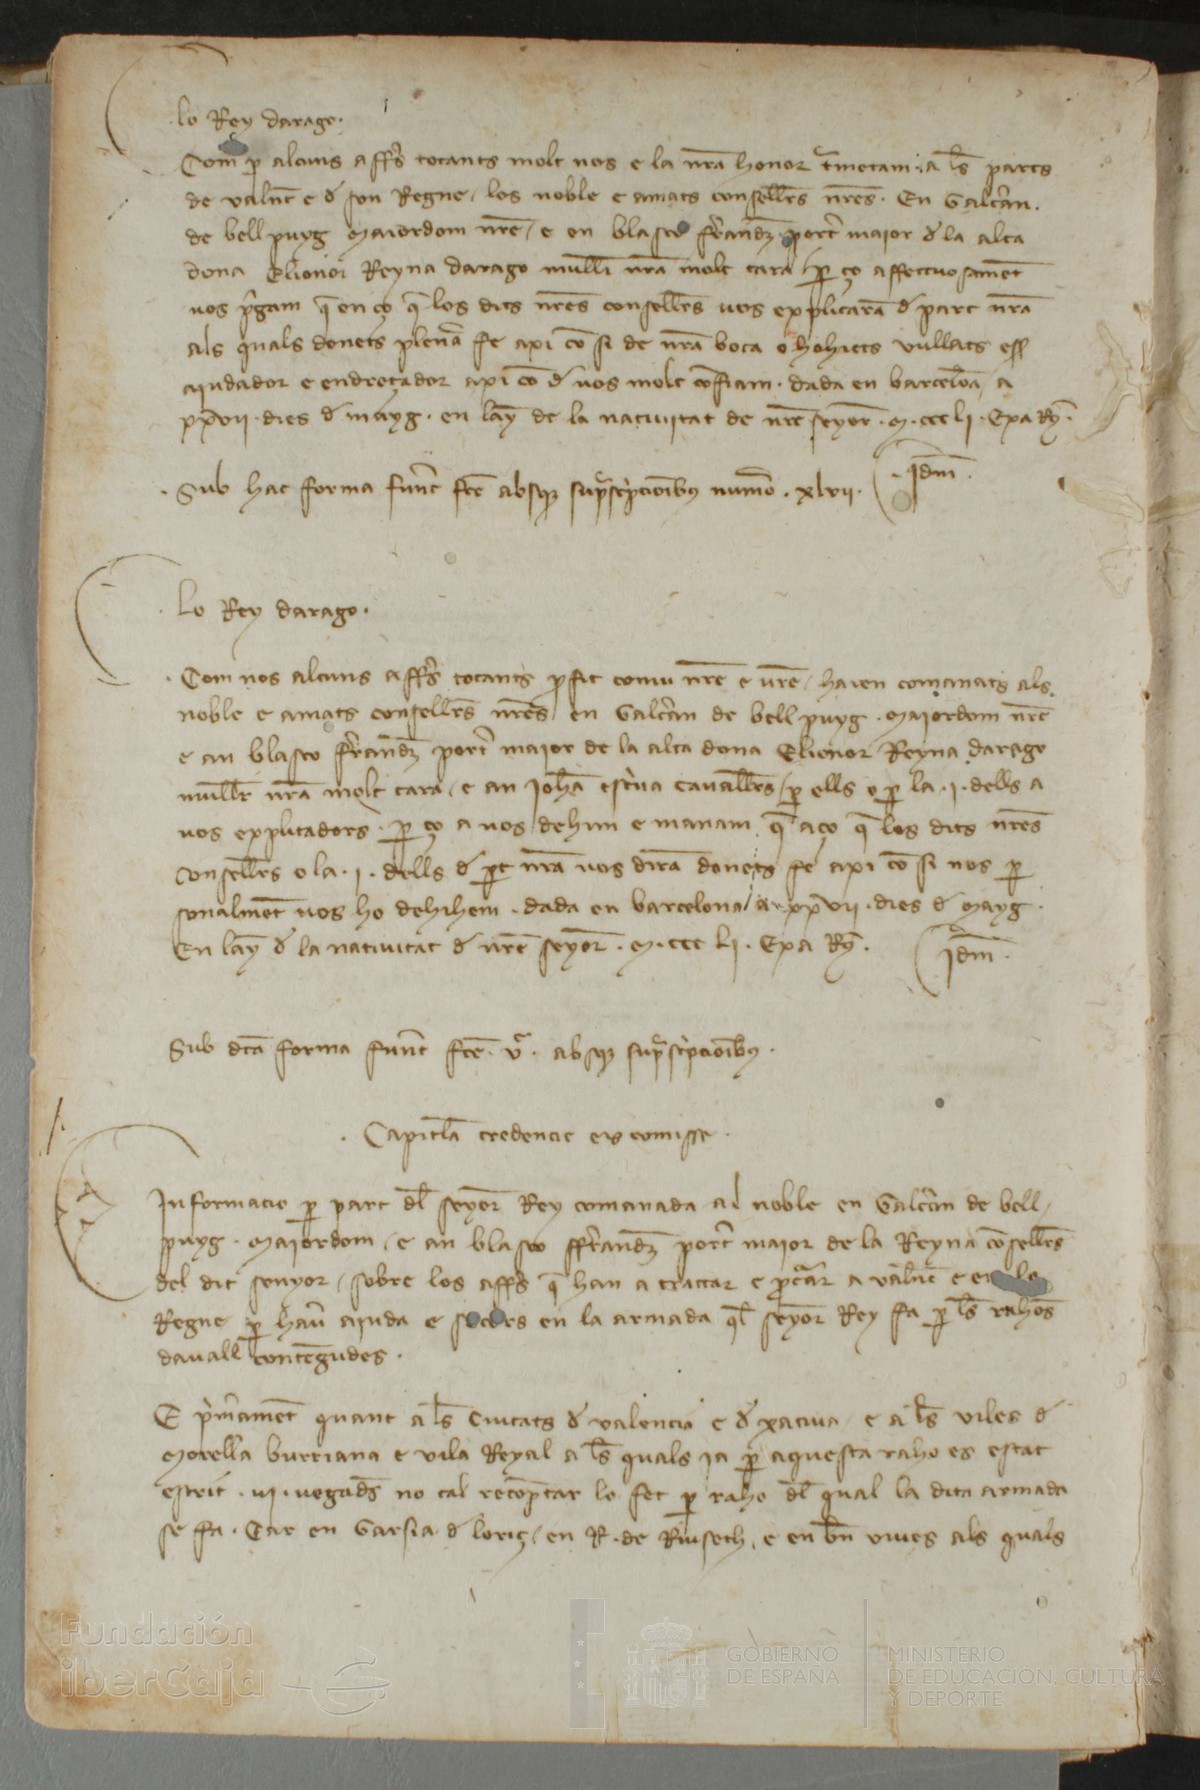 lo Rey darago.
Com p alcuns affs̃ tocants molt nos e la nr̃a honor tmetam a ls̃ parts
de valñt e d̃ son Regne / los noble e amats consellr̃s nr̃es. En Galcr̃an.
de bell puyg Maiordom nr̃e / e en blasco fr̃andz̃ port̃ maior d̃ la alta
dona Elionor Reyna darago mullr̃ nr̃a molt cara / p̱ ço affectuosament̃
uos p̃gam q̃ en ço q̃ los dits nr̃es consellr̃s uos explicarã d̃ part nr̃a
als quals donets plenã fe axi cõ si de nr̃a boca ohohiets vullats ess̃
aiudador e endreçador axi cõ d̃ uos molt cõfiam. dada en barcelõa a
xxvii. dies d̃ mayg. en lãy de la natiuitat de nr̃e seyor̃. M. ccc li. Exa Rx̃.
Sub hac forma funt̃ fc̃e absq̨ sup̃sc̃ptionib̃ numo. xlvii.
Idm̃.
Lo Rey darago.
Com nos alcuns affs̃ tocants p̱fit comu nr̃e e ur̃e / haien comanats als
noble e amats consellr̃s nr̃es en Galcr̃an de bell puyg. Maiordom nr̃e
e an blasco fr̃andz̃ port̃ maior de la alta dona Elionor Reyna darago
mullr̃ nr̃a molt cara / e an Johã esc̃ua cauallr̃s / p̱ ells o p̱ la. i. dells a
uos explicadors. p̱ ço a uos dehim e manam q̃ aço q̃ los dits nr̃es
consellr̃s o la. i. dells d̃ p̱t nr̃a uos dirã donets fe axi cõ si nos p̱
sonalment̃ uos ho dehihem. dada en barcelona a xxvii. dies d̃ Mayg.
En lãy d̃ la natiuitat d̃ nr̃e seyor̃. M. ccc Li. Exa Rx̃.
Idm̃.
Sub dc̃a forma funt̃ fc̃e. v. absq̨ sup̃sc̃ptionib̃.
Capitl̃a credencie eis comisse.
Informacio p̱ part dl̃ seyor̃ Rey comanada al noble en Galcr̃an de bell
puyg. Maiordom / e an blasco ffr̃andz̃ port̃ maior de la Reyna cõsellr̃s
del dit senyor / sobre los affs̃ q̃ han a tractar e p̱cur̃ar a valñc e en lo
Regne p̱ hau̾ aiuda e socors en la armada ql̃ seyor̃ Rey fa p̱ ls̃ rahos̃
dauall contẽgudes.
E p̃mãment̃ quant a ls̃ Ciutats d̃ valencia e d̃ xatiua e a ls̃ viles d̃
Morella burriana e vila Reyal a ls̃ quals ia p̱ aquesta raho es estat
escrit. vi. uegads̃ no cal recõptar lo fet p̱ raho dl̃ qual la dita armada
se fa. Car en Garsia d̃ loriç / en R. de Riusech, e en bñ viues als quals
Fundación
iberCaja
GOBIERNO
DE ESPAÑA
MINISTERIO
DE EDUCACIÓN, CULTURA
Y DEPORTE